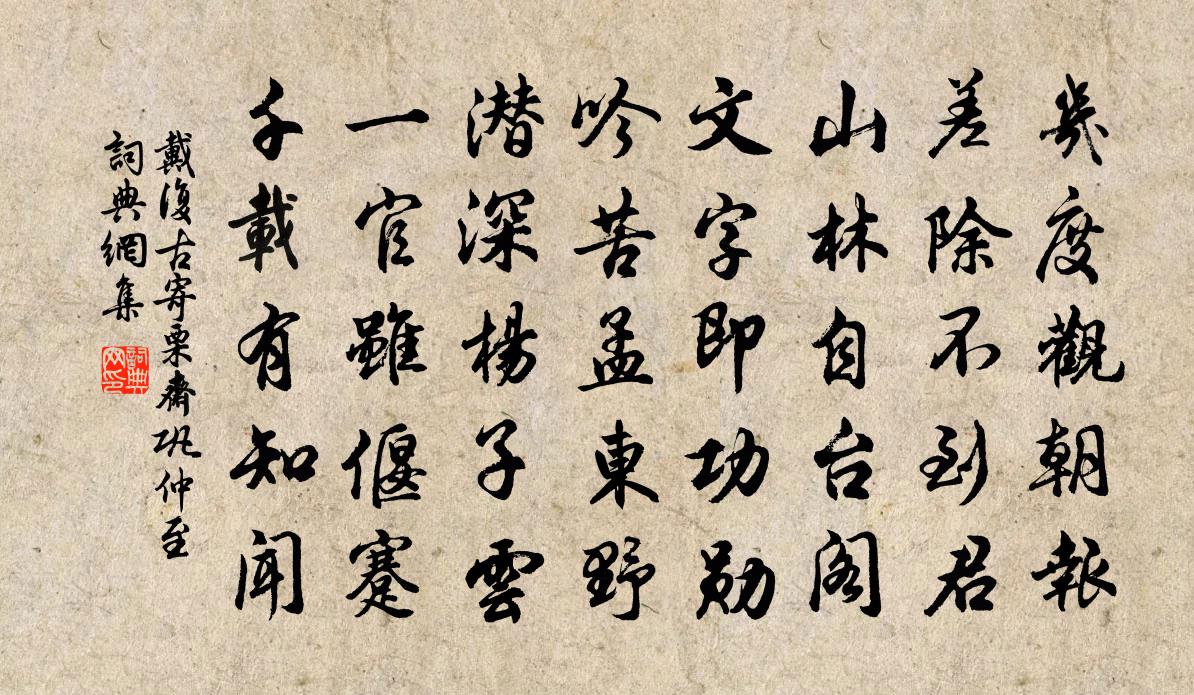 幾度觀朝報
差除不到君
山林自台閣
文字即功勛
吟苦孟東野
潛深楊子雲
一官雖偃蹇
千載有知聞
戴復古寄栗齋鞏仲至
詞典網集
詞典网印